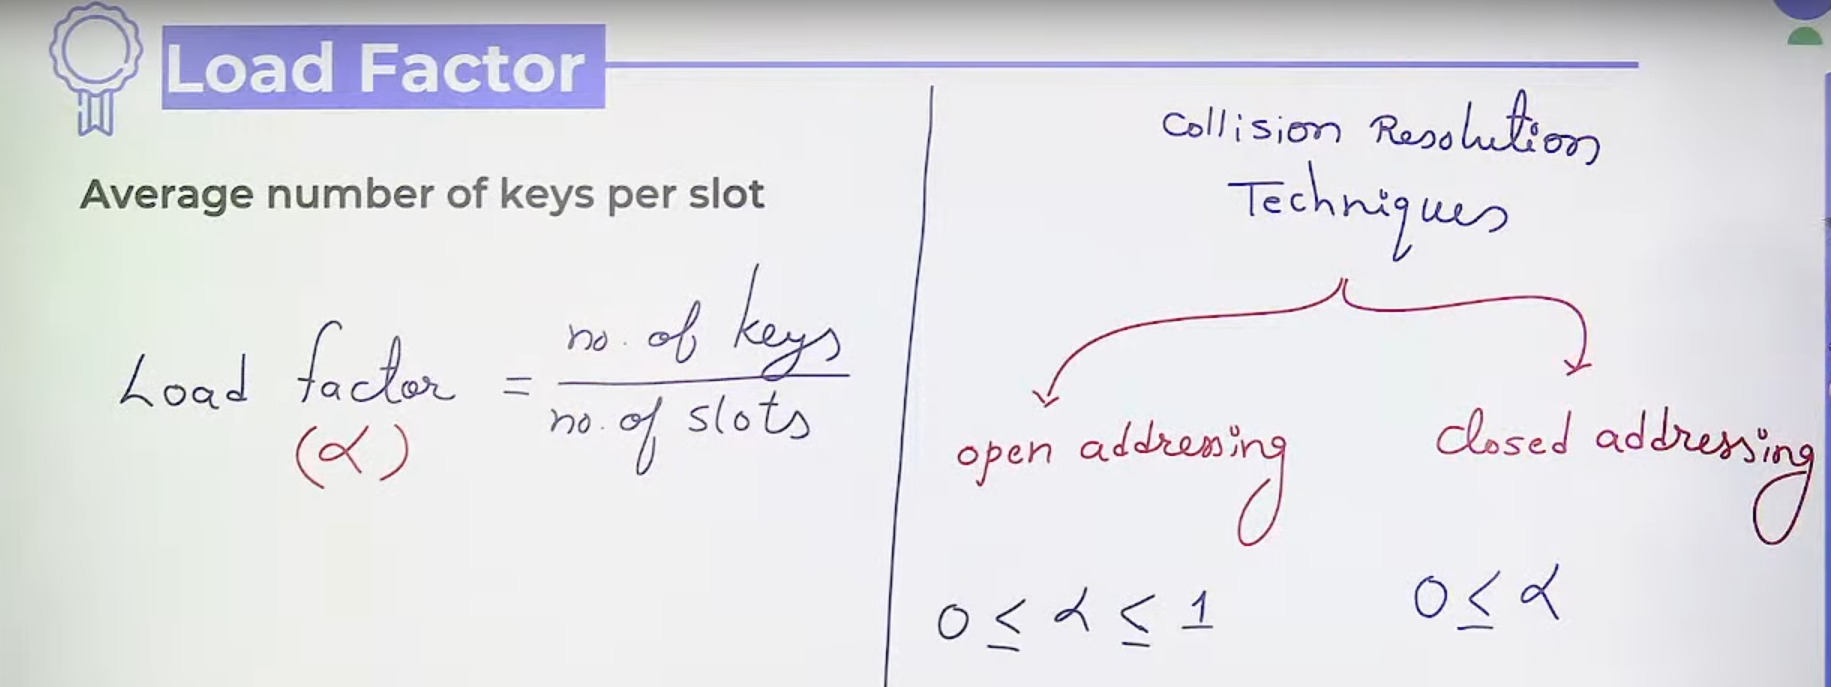 Load Factor
Average number of keys per slot
Load factor = no. of keys
no. of slots
(α)
Collision Resolution
Techniques
open addressing
closed addressing
0 ≤ α ≤ 1
0 ≤ α